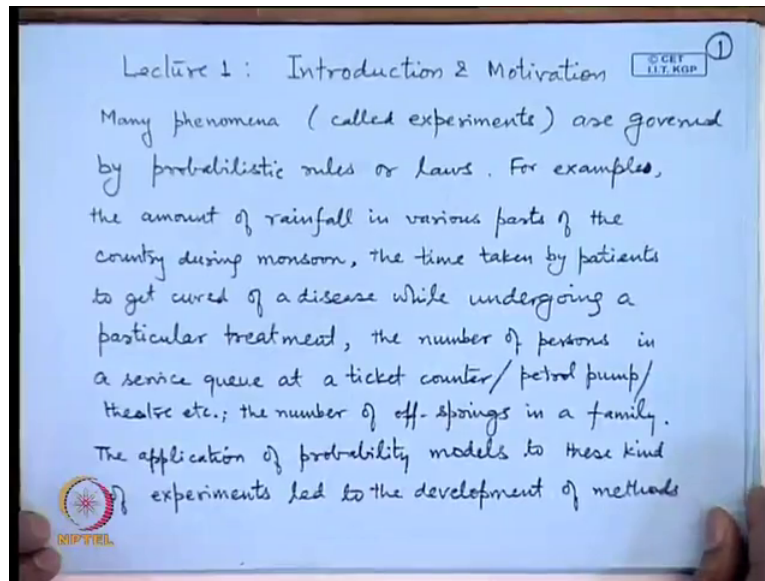 Lecture 1 : Introduction & Motivation
© CET
I.I.T. KGP
1
Many phenomena (called experiments) are governed
by probabilistic rules or laws. For examples,
the amount of rainfall in various parts of the
country during monsoon, the time taken by patients
to get cured of a disease while undergoing a
particular treatment, the number of persons in
a service queue at a ticket counter/petrol pump/
theatre etc.; the number of off-springs in a family.
The application of probability models to these kind
of experiments led to the development of methods
NPTEL